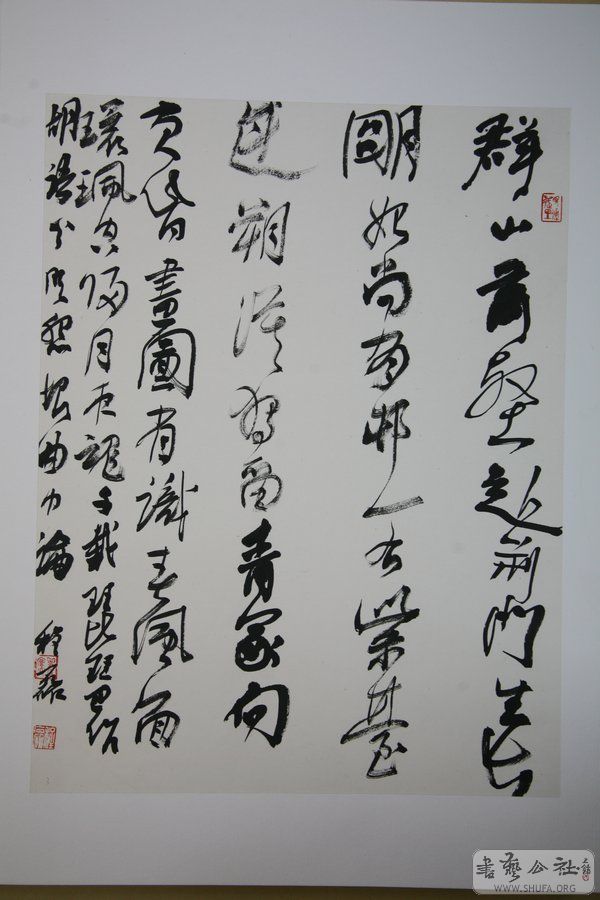 群山萬壑赴荊門生長
明妃尚有邨一去紫臺
連朔漠獨留青冢向
黃昏畫圖省識春風面
環珮空歸月夜魂千載琵琶作
胡語分明怨恨曲中論
書藝公社
WWW.SHUFA.ORG